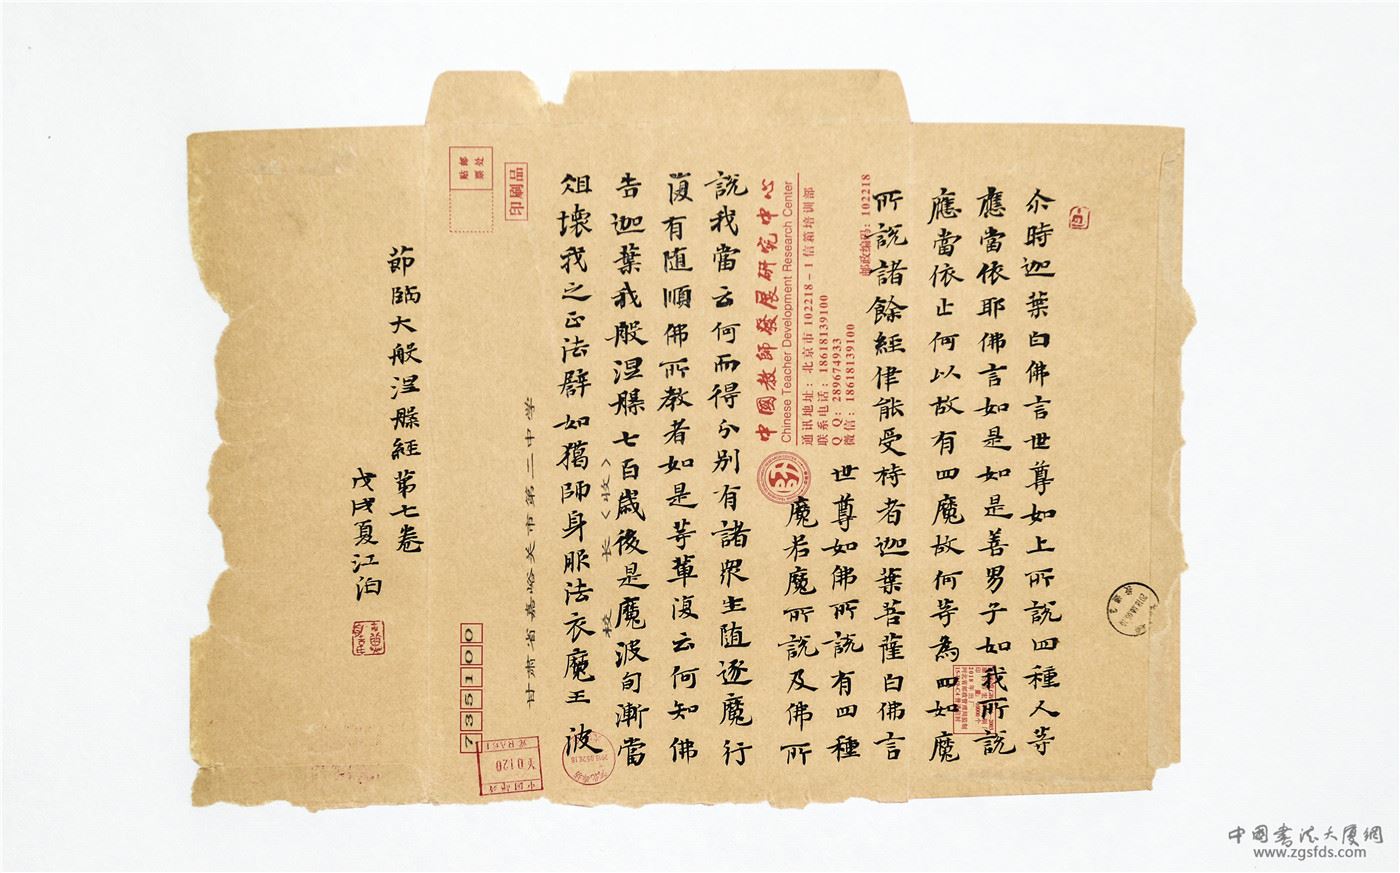 尒時迦葉白佛言世尊如上所說四種人等
應當依耶佛言如是如是善男子如我所說
應當依止何以故有四魔故何等為四如魔
所說諸餘經律能受持者迦葉菩薩白佛言
世尊如佛所說有四種
魔若魔所說及佛所
說我當云何而得分別有諸眾生随逐魔行
復有随順佛所教者如是等輩復云何知佛
告迦葉我般涅槃七百歲後是魔波旬漸當
沮壞我之正法辟如獦師身服法衣魔王波
節臨大般涅槃經第七卷
戊戌夏江泊
邮政编码：102218
中國教師發展研究中心
Chinese Teacher Development Research Center
通讯地址：北京市 102218-1信箱培训部
联系电话：18618139100
Q Q：289674933
微信：18618139100
甘肃省嘉峪关市第三中学
校 长（收）
印刷品
贴邮
票处
735100
¥0120
中国書法大廈網
www.zgsfds.com